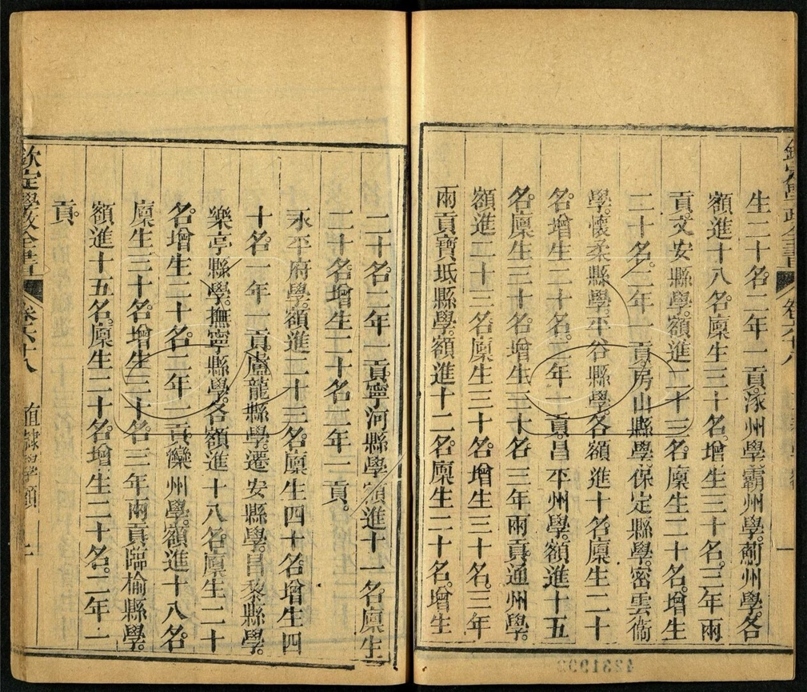 生二十名二年一貢涿州學霸州學薊州學各
額進十八名廪生三十名增生三十名三年兩
貢文安縣學額進二十三名廪生二十名增生
二十名二年一貢房山縣學保定縣學密雲衞
學懷柔縣學平谷縣學各額進十名廪生二十
名增生二十名二年一貢昌平州學額進十五
名廪生三十名增生三十名三年兩貢通州學
額進二十三名廪生三十名增生三十名三年
兩貢寶坻縣學額進十二名廪生二十名增生
欽定學政全書 卷六十八
二十名二年一貢寧河縣學額進十一名廪生
二十名增生二十名二年一貢
永平府學額進二十三名廪生四十名增生四
十名一年一貢盧龍縣學遷安縣學昌黎縣學
樂亭縣學撫寧縣學各額進十八名廪生二十
名增生二十名二年一貢灤州學額進十八名
廪生三十名增生三十名三年兩貢臨榆縣學
額進十五名廪生二十名增生二十名二年一
貢
欽定學政全書 卷六十八 直隸學額
4231992